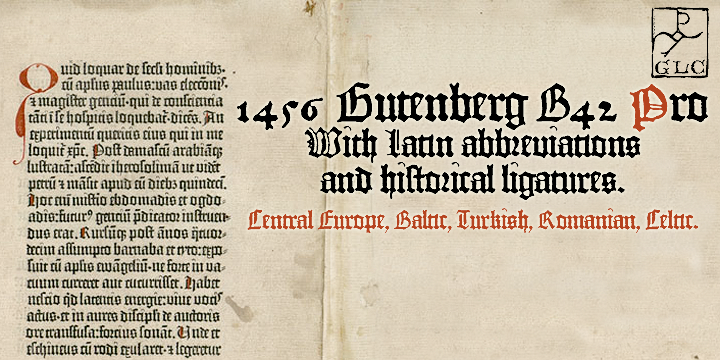 Quid loquar de secli hominibz.
cū aplus paulus: vas electōnis.
⁊ magister gentiū: qui de conscientia
tāti ī se hospitis loquebat̄. dicēs. An
experimentū queritis eius qui in me
loquit̄ xp̄c. Post damascū arabiāqz
lustratā: ascēdit iherosolimā ut videt
petrū ⁊ māsit apud eū diebz quindeci.
Hoc enī misterio ebdomadis et ogdo
adis: futur⁹ gentiū p̄dicator instruen
dus erat. Rursūqz post ānos q̄tuor-
decim assumpto barnaba et tyto: expo-
suit cū aplis ewāgeliū. ne forte in va-
cuum curreret aut cucurrisset. Habet
nescio qd latentis energie: vive voc
actus. et in aures discipli de auctoris
ore transfusa: forcius sonāt. Unde et
eschineus cū rodi exularet. ⁊ legeretur
GLC
1456 Gutenberg B42 Pro
With Latin abbreviations
and historical ligatures.
Central Europe, Baltic, Turkish, Romanian, Celtic.